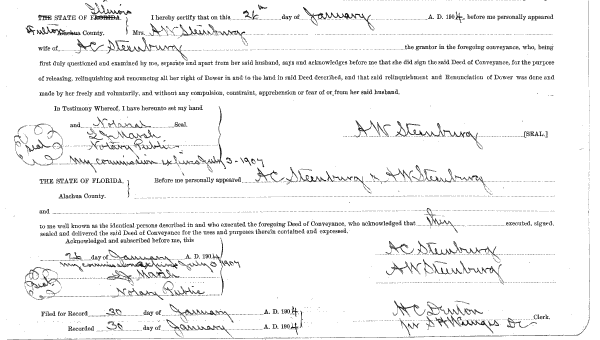 Illinois
THE STATE OF FLORIDA. I hereby certify that on this 26th day of January A. D. 1904, before me personally appeared
Fulton Alachua County. Mrs. A W Steenburg
wife of A C Steenburg the grantor in the foregoing conveyance, who, being
first duly questioned and examined by me, separate and apart from her said husband, says and acknowledges before me that she did sign the said Deed of Conveyance, for the purpose
of releasing, relinquishing and renouncing all her right of Dower in and to the land in said Deed described, and that said relinquishment and Renunciation of Dower was done and
made by her freely and voluntarily, and without any compulsion, constraint, apprehension or fear of or from her said husband.
In Testimony Whereof, I have hereunto set my hand
and Notarial Seal
L J Marsh A W Steenburg [SEAL.]
Seal Notary Public
My commission expires July 3-1907
THE STATE OF FLORIDA. Before me personally appeared A C Steenburg & A W Steenburg
Alachua County.
and
to me well known as the identical persons described in and who executed the foregoing Deed of Conveyance, who acknowledged that they executed, signed,
sealed and delivered the said Deed of Conveyance for the uses and purposes therein contained and expressed.
Acknowledged and subscribed before me, this
26 day of January A. D. 1904 A C Steenburg
My commission expires July 3 1907
Seal L J Marsh A W Steenburg
Notary Public
Filed for Record 30 day of January A. D. 1904 H C Denton Clerk.
Recorded 30 day of January A. D. 1904 per S H Wienges DC